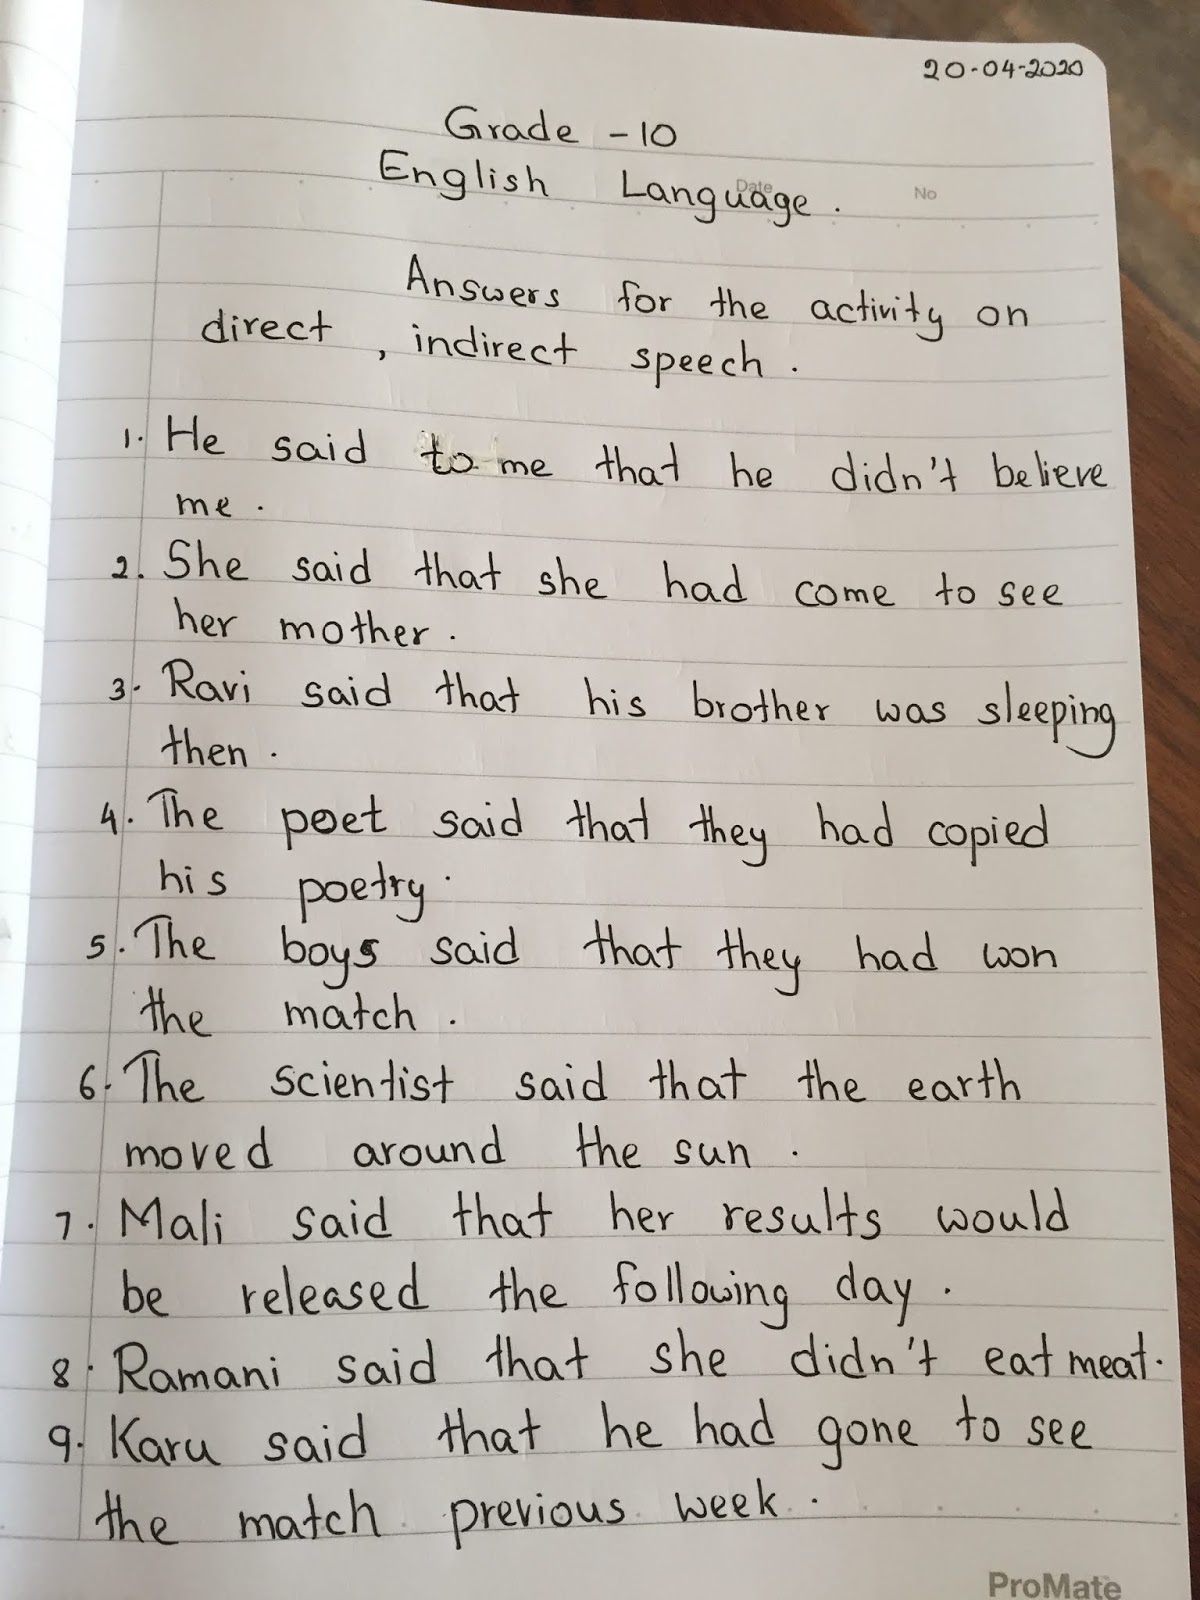 20-04-2020
Grade - 10
English Language.
Date
No
Answers for the activity on
direct, indirect speech.
1. He said to me that he didn't believe
me.
2. She said that she had come to see
her mother.
3. Ravi said that his brother was sleeping
then.
4. The poet said that they had copied
his poetry.
5. The boys said that they had won
the match.
6. The scientist said that the earth
moved around the sun.
7. Mali said that her results would
be released the following day.
8. Ramani said that she didn't eat meat.
9. Karu said that he had gone to see
the match previous week.
ProMate